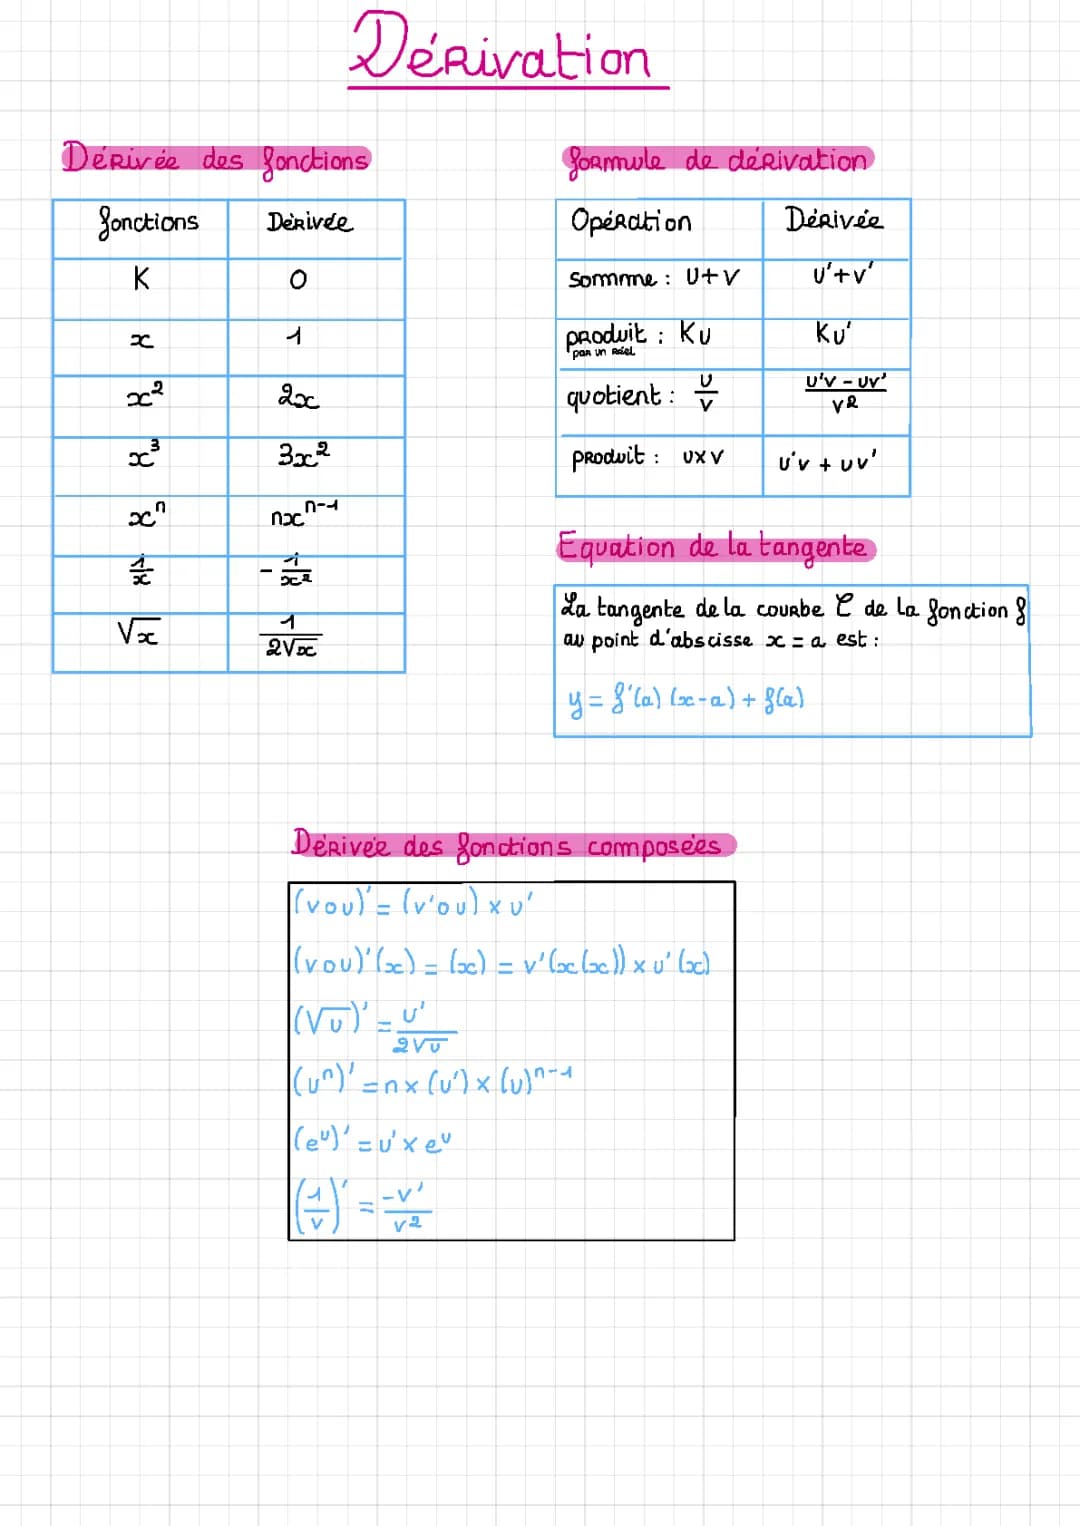 Dérivation
Dérivée des fonctions
fonctions Dérivée
K 0
x 1
x² 2x
x³ 3x²
xⁿ nxⁿ⁻¹
1/x -1/x²
√x 1/2√x
formule de dérivation
Opération Dérivée
sommme : U+V U'+V'
produit : KU KU'
par un réel
quotient : U/V U'V - UV'/V²
produit : U x V U'V + UV'
Equation de la tangente
La tangente de la courbe C de la fonction f
au point d'abscisse x = a est :
y = f'(a) (x-a) + f(a)
Dérivée des fonctions composées
(v o u)' = (v' o u) x u'
(v o u)'(x) = (x) = v'(x(x)) x u'(x)
(√u)' = u'/2√u
(uⁿ)' = n x (u') x (u)ⁿ⁻¹
(eᵘ)' = u' x eᵘ
(1/v)' = -v'/v²